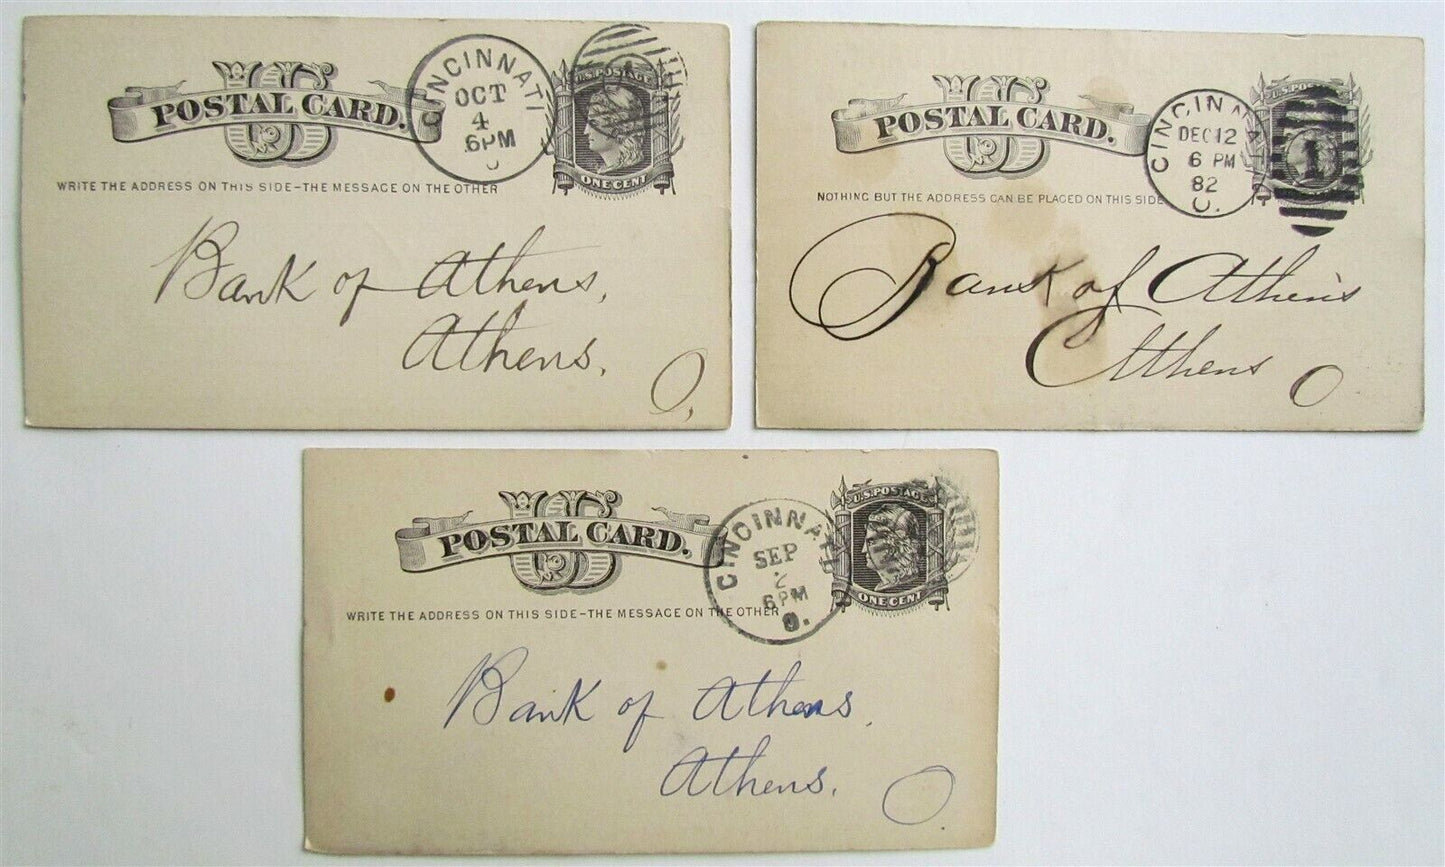 US
POSTAL CARD.
CINCINNATI
OCT
4
6PM
O
U.S. POSTAGE
ONE CENT
WRITE THE ADDRESS ON THIS SIDE–THE MESSAGE ON THE OTHER
Bank of Athens,
Athens,
O,
US
POSTAL CARD.
CINCINNATI
DEC 12
6 PM
82
O.
1
NOTHING BUT THE ADDRESS CAN BE PLACED ON THIS SIDE
Bank of Athens
Athens O
US
POSTAL CARD.
CINCINNATI
SEP
2
6PM
O.
U.S. POSTAGE
ONE CENT
WRITE THE ADDRESS ON THIS SIDE–THE MESSAGE ON THE OTHER
Bank of Athens,
Athens.
O